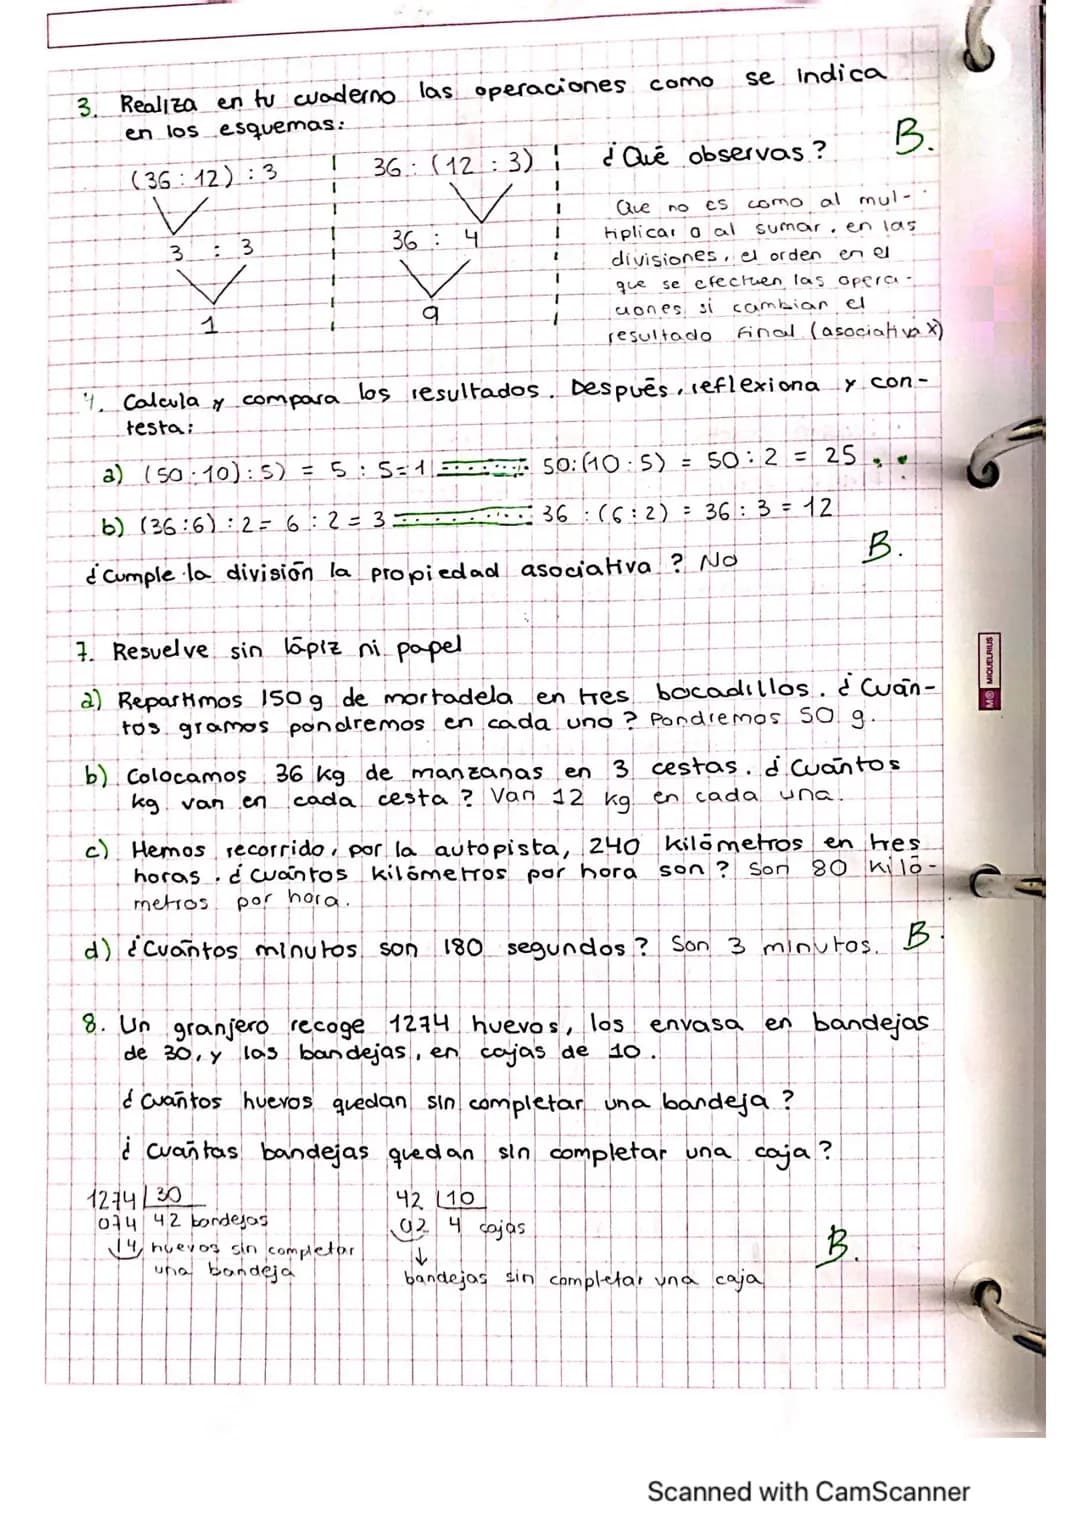 3. Realiza en tu cuaderno las operaciones como se indica
en los esquemas:
B.
(36 : 12) : 3
36 : (12 : 3)
¿Qué observas?
3 : 3
36 : 4
1
9
Que no es como al mul-
tiplicar o al sumar, en las
divisiones, el orden en el
que se efectuen las opera-
ciones si cambian el
resultado final (asociativa X)
4. Calcula y compara los resultados. Después, reflexiona y con-
testa:
a) (50 : 10) : 5) = 5 : 5 = 1 50:(10 : 5) = 50 : 2 = 25
b) (36 : 6) : 2 = 6 : 2 = 3 36 : (6 : 2) = 36 : 3 = 12
B.
¿Cumple la división la propiedad asociativa? No
7. Resuelve sin lápiz ni papel
a) Repartimos 150 g de mortadela en tres bocadillos. ¿Cuán-
tos gramos pondremos en cada uno? Pondremos 50 g.
b) Colocamos 36 kg de manzanas en 3 cestas. ¿Cuántos
kg van en cada cesta? Van 12 kg en cada una.
c) Hemos recorrido, por la autopista, 240 kilómetros en tres
horas. ¿Cuántos kilómetros por hora son? Son 80 kiló-
metros por hora.
d) ¿Cuántos minutos son 180 segundos? Son 3 minutos. B.
8. Un granjero recoge 1274 huevos, los envasa en bandejas
de 30, y las bandejas, en cajas de 10.
¿Cuántos huevos quedan sin completar una bandeja?
¿Cuántas bandejas quedan sin completar una caja?
1274 | 30
074 42 bandejas
14 huevos sin completar
una bandeja
42 | 10
02 4 cajas
bandejas sin completar una caja
B.
MIQUELRIUS
Scanned with CamScanner